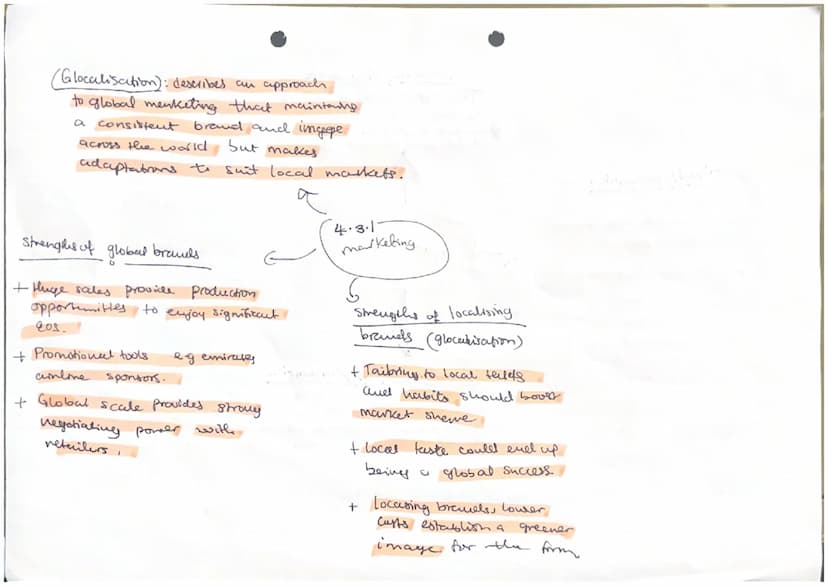 (Glocalisation): describes an approach
to global marketing that maintains
a consistent brand and image
across the world but makes
adaptations to suit local markets.
4.3.1
marketing
Strengths of global brands
+ Huge sales provide production
opportunities to enjoy significant
EOS.
+ Promotional tools eg emirates
airline sponsors.
+ Global scale provides strong
negotiating power with
retailers.
Strengths of localising
brands (glocalisation)
+ Tailoring to local
and habits should boost
market share
+ local taste could end up
being a global success
+ brands, lower
costs establish a greener
image for the firm